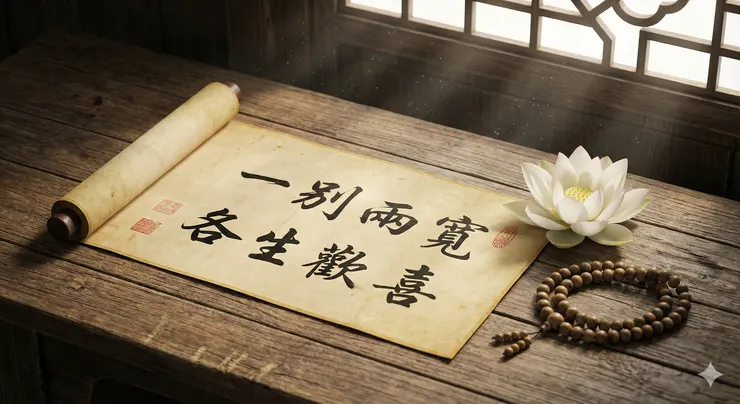 一别兩寬
各生歡喜